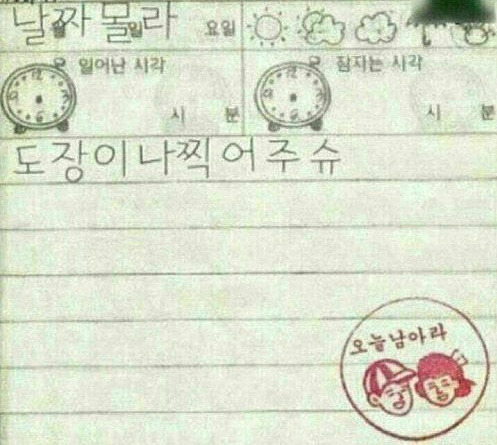 날짜 몰라 요일
일어난 시각 잠자는 시각
시 분 시 분
도장이나찍어주슈
오늘남아라